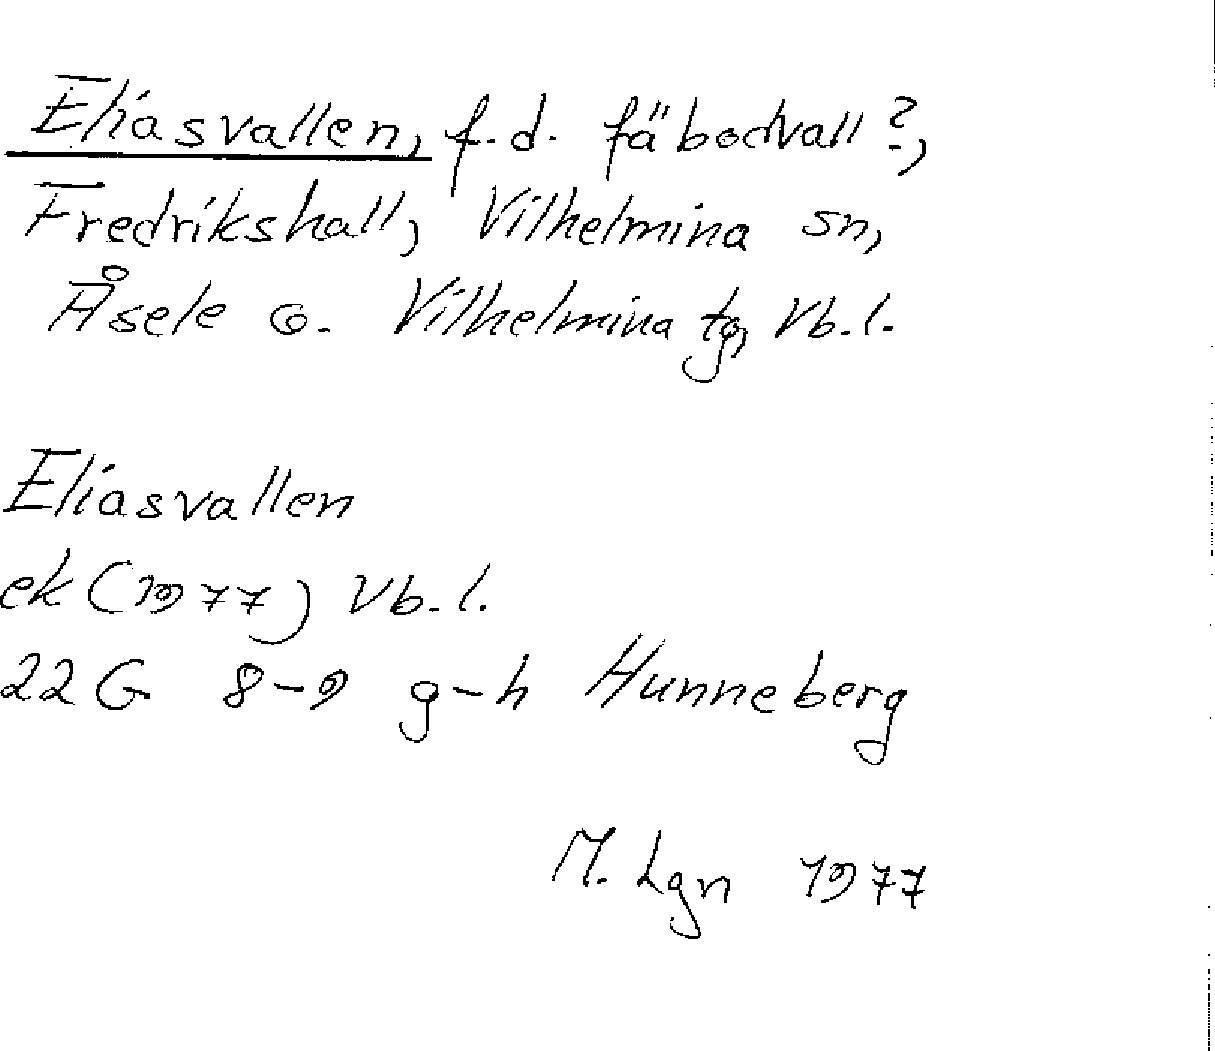 Eliasvallen, f.d. fäbodvall?,
Fredrikshall, Vilhelmina sn,
Åsele o. Vilhelmina tg, Vb.l.
Eliasvallen
ek (1977) Vb.l.
22 G 8-9 g-h Hunneberg
M. Lgn 1977